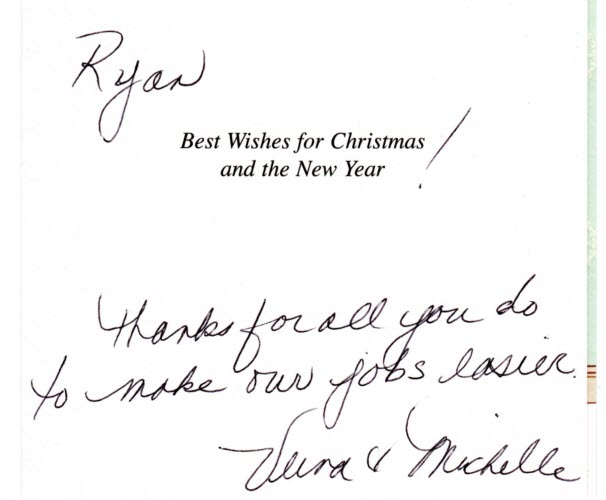 Ryan
Best Wishes for Christmas
and the New Year!
thanks for all you do
to make our jobs easier.
& Michelle